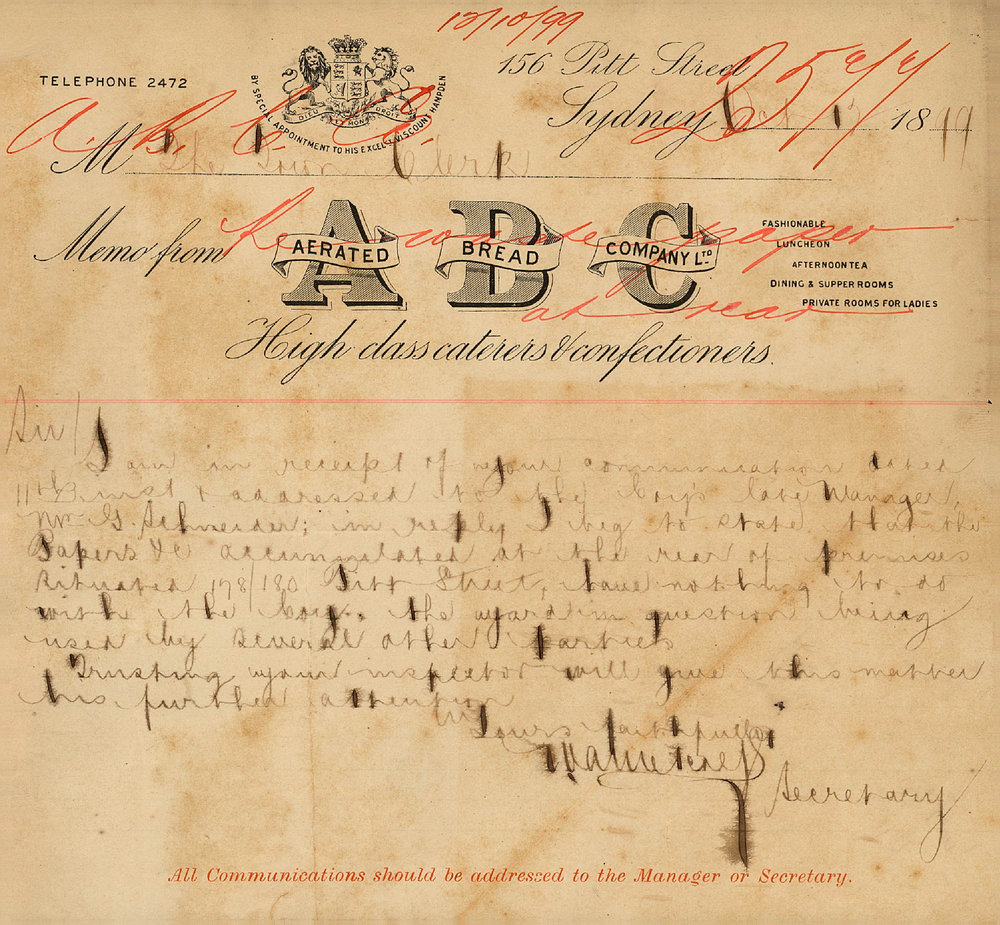 12/10/99
TELEPHONE 2472
156 Pitt Street
BY SPECIAL APPOINTMENT TO HIS EXCEL. VISCOUNT HAMPDEN
DIEU ET MON DROIT
A.B.C. Co.
Sydney Oct 1899
M The Town Clerk
Memo from
A B C
AERATED BREAD COMPANY LTD
Re waste paper
at rear
FASHIONABLE
LUNCHEON
AFTERNOON TEA
DINING & SUPPER ROOMS
PRIVATE ROOMS FOR LADIES
High class caterers & confectioners.
Sir/
I am in receipt of your communication dated
11th inst & addressed to the Coy's late Manager,
Mr G. Schneider; in reply I beg to state, that the
Papers &c accumulated at the rear of premises
situated 178/180 Pitt Street, have nothing to do
with the Coy. the yard in question being
used by several other parties
Trusting your inspector will give this matter
his further attention
Yours faithfully
Secretary
All Communications should be addressed to the Manager or Secretary.